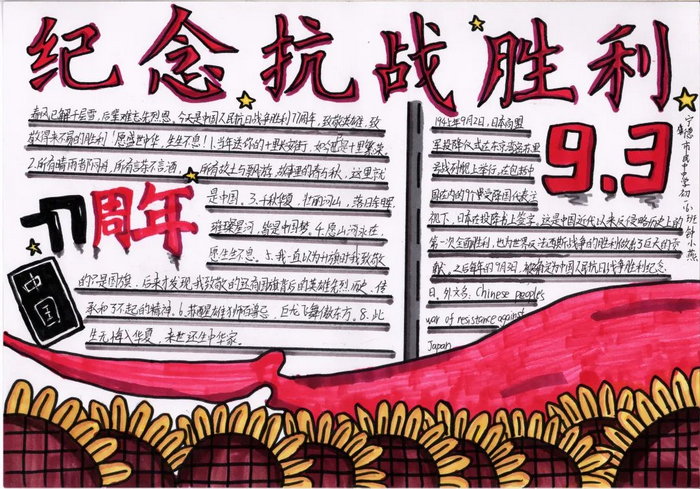 纪念抗战胜利
春风已解千层雪,后辈难忘先烈恩,今天是中国人民抗日战争胜利77周年,致敬英雄,致
敬得来不易的胜利!愿盛世中华,生生不息!1.当年送你的十里长安街,如今已是十里繁荣
2.所有晴雨都同舟,所有言车不言酒,所有故土与朝游,故事里的春与秋,这里就
是中国。3.千秋华颂,壮丽河山,落日金照
璀璨星河,皆是中国梦。4.愿山河永在,
愿生生不息。5.我一直以为升旗时我致敬
的only是国旗,后来才发现,我致敬的五星国旗背后的英雄先烈历史、信
承和了不起的精神。6.苏醒雄狮百兽忌,巨龙飞舞傲东方。8.此
生无悔入华夏,来世还生中华家。
77周年
中国
1945年9月2日,日本向盟
军投降仪式在东京湾密苏里
号战列舰上举行,在包括中
国在内的9个受降国代表注
视下,日本在投降书上签字,这是中国近代以来反侵略历史上的
第一次全面胜利,也为世界反法西斯战争的胜利做出了巨大的贡
献。之后每年的9月3日,被确定为中国人民抗日战争胜利纪念
日,外文名:Chinese peoples
war of resistance against
Japan
9.3
宁德市民中学初一小班钟小燕